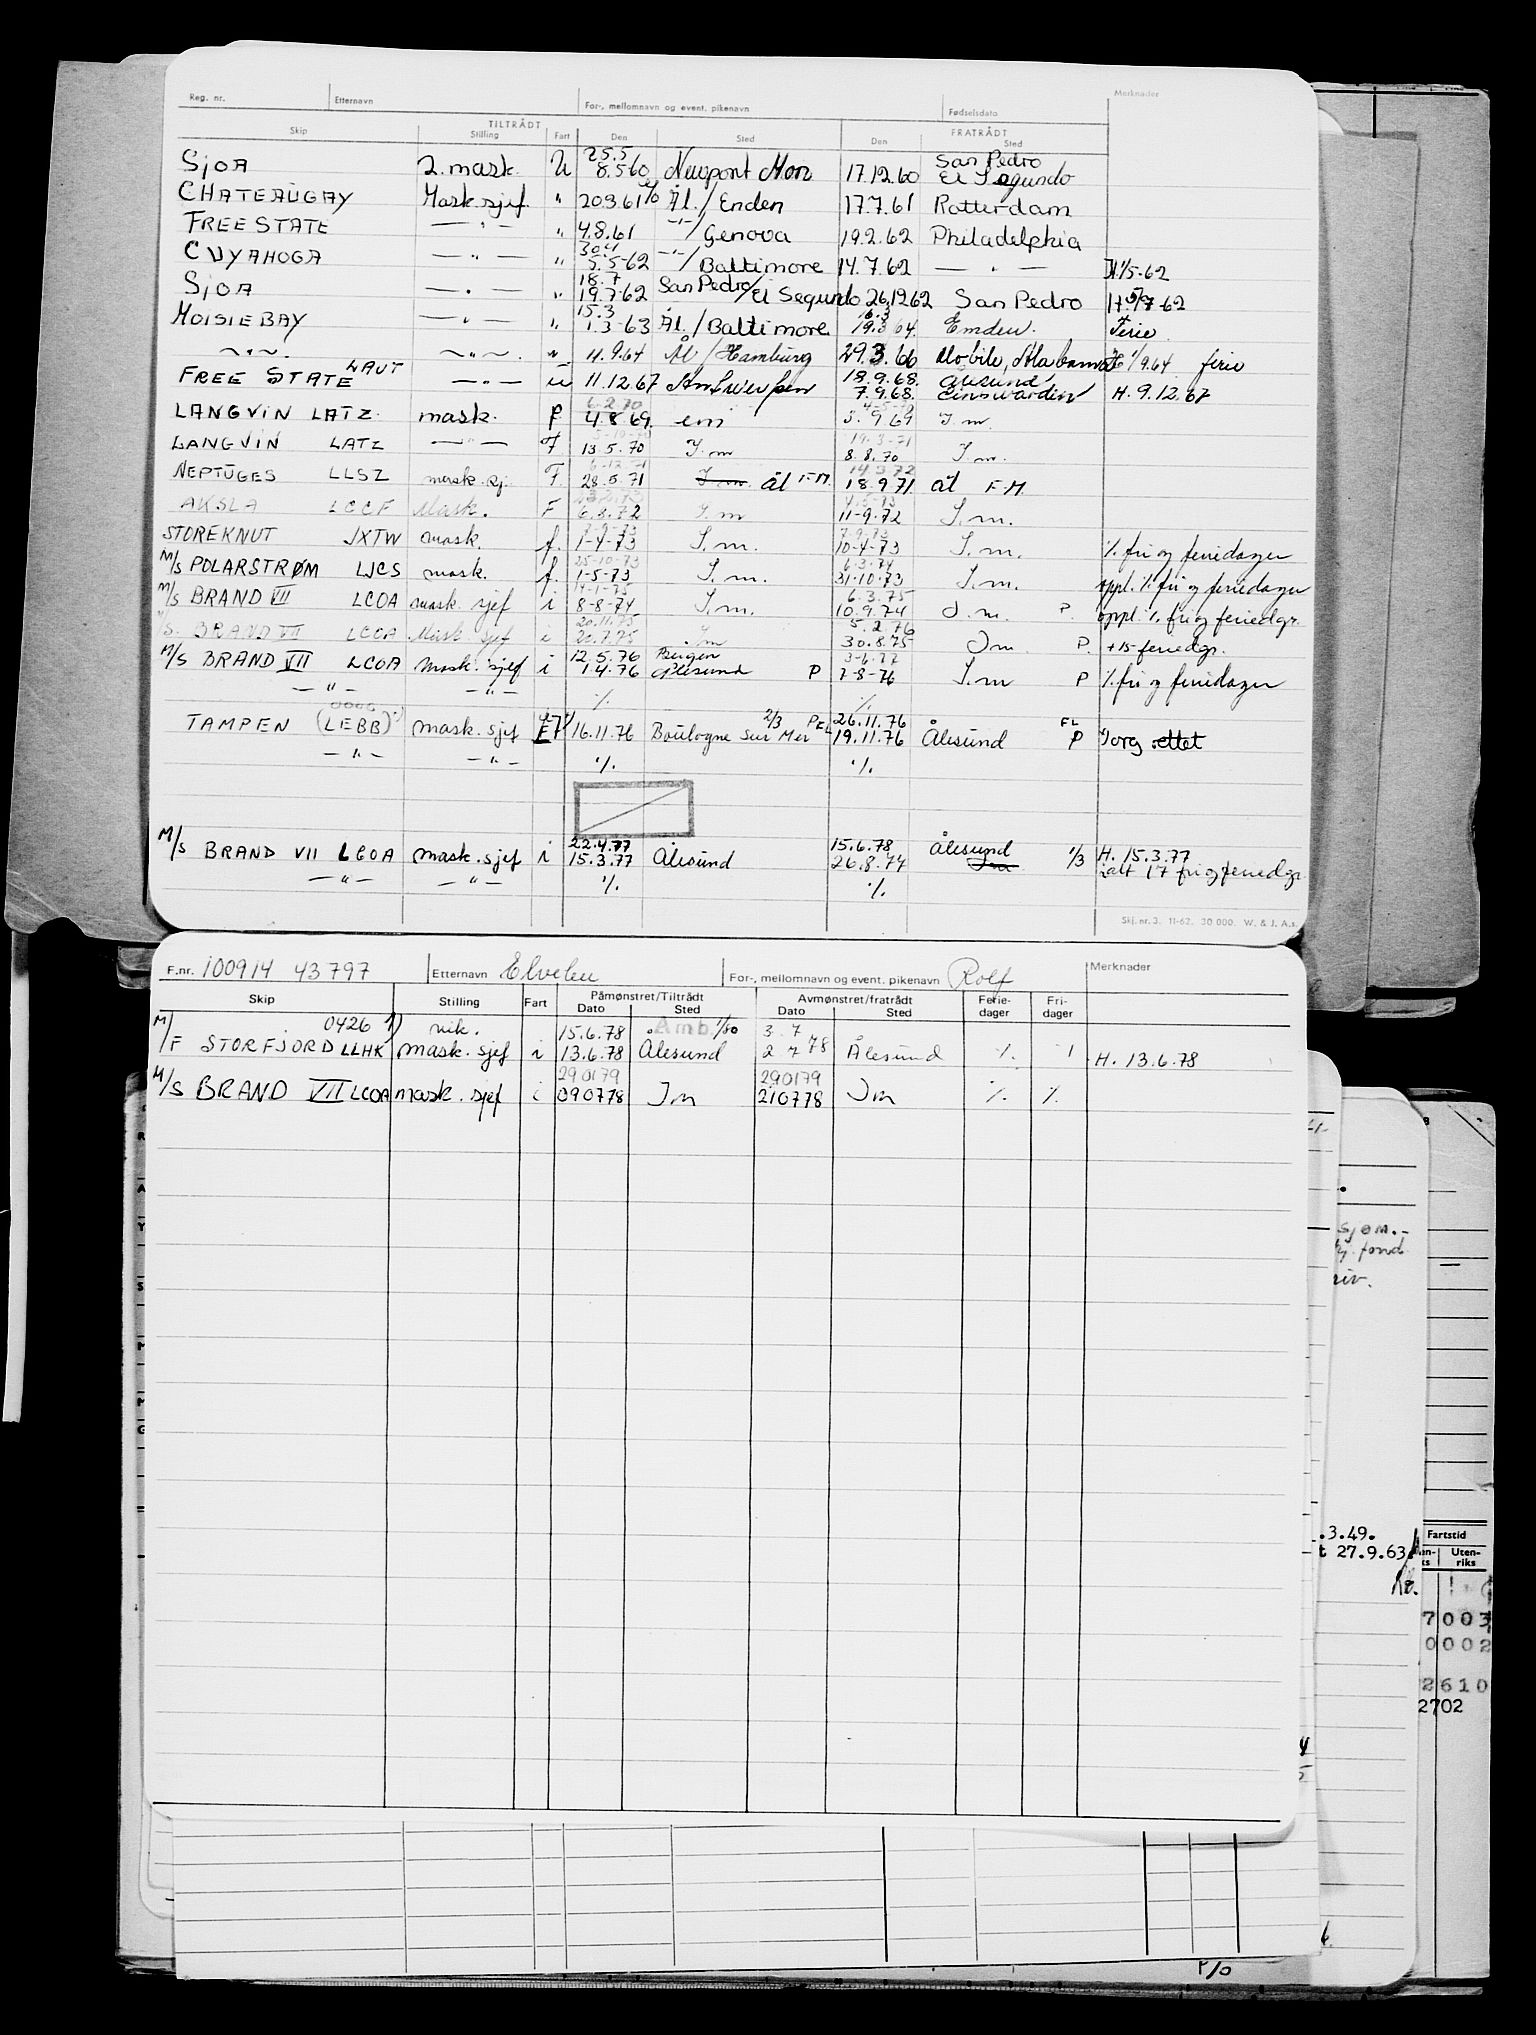 Reg. nr. Etternavn For-, mellomnavn og event. pikenavn Fødselsdato Merknader
TILTRÅDT FRATRÅDT
Skip Stilling Fart Den Sted Den Sted
25.5 San Pedro
SJOA 2. mask. U 8.5-60 Newport Mon 17.12.60 El Segundo
CHATEAUGAY Mask.sjef " 20.3.61 Ål./Emden 17.7.61 Rotterdam
FREE STATE — " — " 4.8.61 —"—/Genova 19.2.62 Philadelphia
30.4
CUYAHOGA — " — " 5.5-62 —"—/Baltimore 14.7.62 — " — H 1/5-62
18.7
SJOA — " — " 19.7-62 San Pedro/El Segundo 26.12.62 San Pedro
15.3 16.3
MOISIE BAY — " — " 1.3-63 Ål./Baltimore 19.3.64. Emden. Ferie
~ " ~. ~ " ~. " 11.9.64 Ål/Hamburg 29.3.66 Mobile, Alabama 1/9.64 ferie
18.9.68. Ålesund
FREE STATE LAUT — " — u 11.12.67 Antwerpen 7.9.68. Einswarden H. 9.12.67
6-2-70
LANGVIN LATZ. mask. f 4.8.69. em 3.9.69 I.m.
19-3-71
LANGVIN LATZ — " — F 13.5.70 I.m 8.8.70 I.m.
6-12-71 14.3.72
NEPTUGES LLSZ mask.sj. F. 28.5.71 I.m. Ål F.M. 18.9.71 Ål F.M.
4.5.73
AKSLA LCCF Mask. F 6.8.72 I.m 11-9.72 I.m.
STOREKNUT JXTW mask. f. 1-4-73 I.m. 10-4-73 I.m. %. fri og feriedager
25-10-73 6.3.74
M/S POLARSTRØM LJCS mask. f. 1-5-73 I.m. 31-10-73 I.m. oppl. % fri og feriedager
14-1-75 6.3.75
M/S BRAND VII LCOA mask. sjef i 8-8-74 I.m. 10.9.74 I.m. P. oppl. %. fri og feriedgr.
20.11.75 5.2.76
M/S. BRAND VII LCOA Mask sjef i 20.7.75 I.m 30.8.75 I.m P. +15 feriedgr.
12.5.76 Bergen 3-6-77
M/S BRAND VII LCOA mask. sjef i 1.4.76 Ålesund P 7-8-76 I.m P %. fri og feriedager
— " — — " — %. %.
0000 2/3 P EL 26.11.76 FL
TAMPEN (LEBB) mask. sjef 16.11.76 Boulogne sur Mer 19.11.76 Ålesund P
— " — — " — %. %.
22.4.77 15.6.78
M/S BRAND VII LCOA mask.sjef i 15.3.77 Ålesund 26.8.77 Ålesund I.m 1/3 H. 15.3.77
— " — — " — %. %. ialt 17 fri og feriedgr.
Skj. nr. 3. 11-62. 30 000. W. & J. A.s.
F.nr. 100914 43797 Etternavn Elvelu For-, mellomnavn og event. pikenavn Rolf Merknader
Skip Stilling Fart Påmønstret/Tiltrådt Avmønstret/fratrådt Ferie-dager Fri-dager
Dato Sted Dato Sted
0426 1) vik. 15.6.78 Amb. 1/80 3.7
M/F STORFJORD LLHK mask. sjef i 13.6.78 Ålesund 2.7 78 Ålesund %. 1 H. 13.6.78
290179 290179
M/S BRAND VII LCOA mask. sjef i 090778 I.m 210778 I.m %. %.
sjøm.-
fond
riv.
.3.49.
t 27.9.63
Fartstid
Uten-
riks
7003
0002
2610
2702